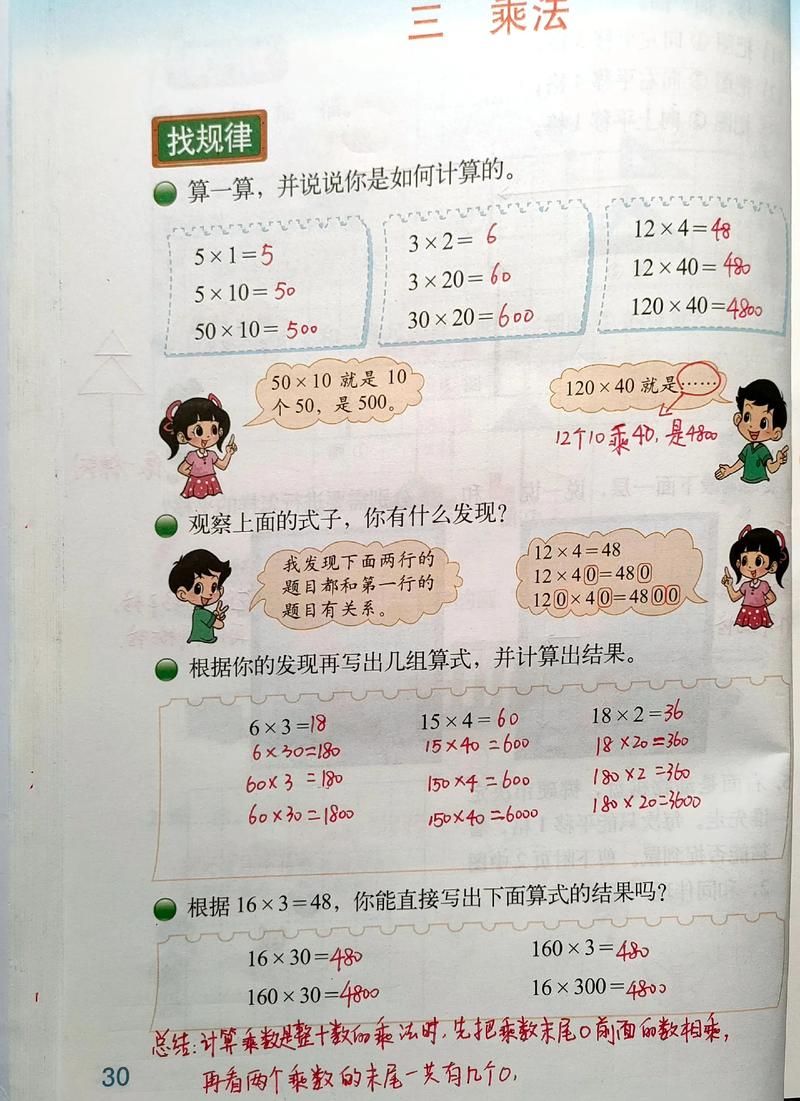 三 乘法
找规律
算一算，并说说你是如何计算的。
5×1=5
5×10=50
50×10=500
3×2=6
3×20=60
30×20=600
12×4=48
12×40=480
120×40=4800
50×10 就是 10
个 50，是 500。
120×40 就是……
12个10乘40，是4800
观察上面的式子，你有什么发现？
我发现下面两行的
题目都和第一行的
题目有关系。
12×4=48
12×40=480
120×40=4800
根据你的发现再写出几组算式，并计算出结果。
6×3=18
6×30=180
60×3=180
60×30=1800
15×4=60
15×40=600
150×4=600
150×40=6000
18×2=36
18×20=360
180×2=360
180×20=3600
根据 16×3=48，你能直接写出下面算式的结果吗？
16×30=480
160×3=480
160×30=4800
16×300=4800
总结：计算乘数是整十数的乘法时，先把乘数末尾0前面的数相乘，
再看两个乘数的末尾一共有几个0，
30